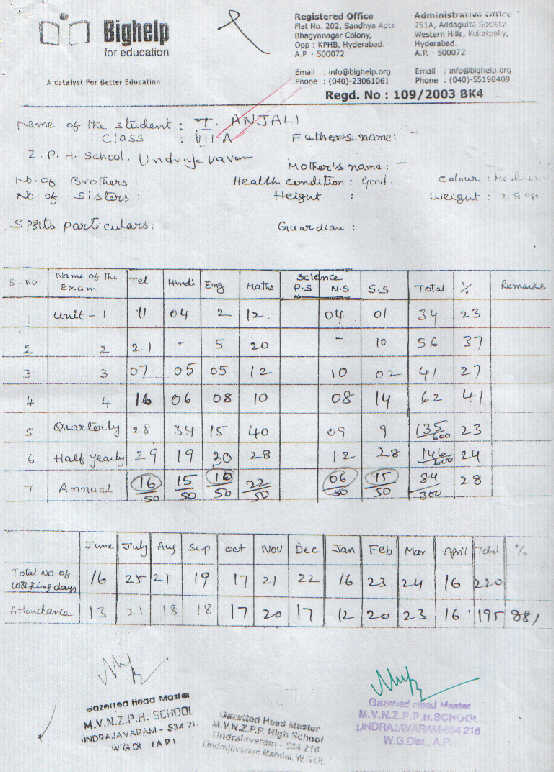 Bighelp
for education
A catalyst For Better Education
Registered Office
Flat No. 202, Sandhya Apts
Bhagyanagar Colony,
Opp : KPHB, Hyderabad.
A.P - 500072
Email : info@bighelp.org
Phone : (040)-23061061
Administrative Office
251A, Addagutta Society
Western Hills, Kukatpally,
Hyderabad.
A.P. - 500072
Email : info@bighelp.org
Phone : (040)-55198409
Regd. No : 109/2003 BK4
Name of the student : T. ANJALI
Class : VI A
Father's name:
Z. P. H. School.
Mother's name:
No. of Brothers
Health condition : Good
Colour :
No of Sisters:
Height :
Weight :
Sports particulars:
Guardian :
S.No Name of the Exam Tel Hindi Eng Maths Science P.S N.S S.S Total % Remarks
1 Unit - 1 11 04 2 12 04 01 34 23
2 2 21 - 5 20 - 10 56 37
3 3 07 05 05 12 10 02 41 27
4 4 16 06 08 10 08 14 62 41
5 Quarterly 28 34 15 40 09 9 135/600 23
6 Half yearly 29 19 20 28 12 28 24
7 Annual 16/50 15/50 10/50 22/50 06/50 15/50 84/300 28
June July Aug Sep Oct Nov Dec Jan Feb Mar April Total %
Total No of working days 16 25 21 19 17 21 22 16 23 24 16 220
Attendance 13 21 18 18 17 20 17 12 20 23 16 195 88%
Gazetted Head Master
M.V.N.Z.P.H. SCHOOL
UNDRAJAVARAM - 534 21
W.G.Dt. (A.P)
Gazetted Head Master
M.V.N.Z.P.P. High School
Undrajavaram - 534 216
Undrajavaram Mandal, W.G.Dt.
Gazetted Head Master
M.V.N.Z.P.P.H.SCHOOL
UNDRAJAVARAM-534 216
W.G.Dist., A.P.